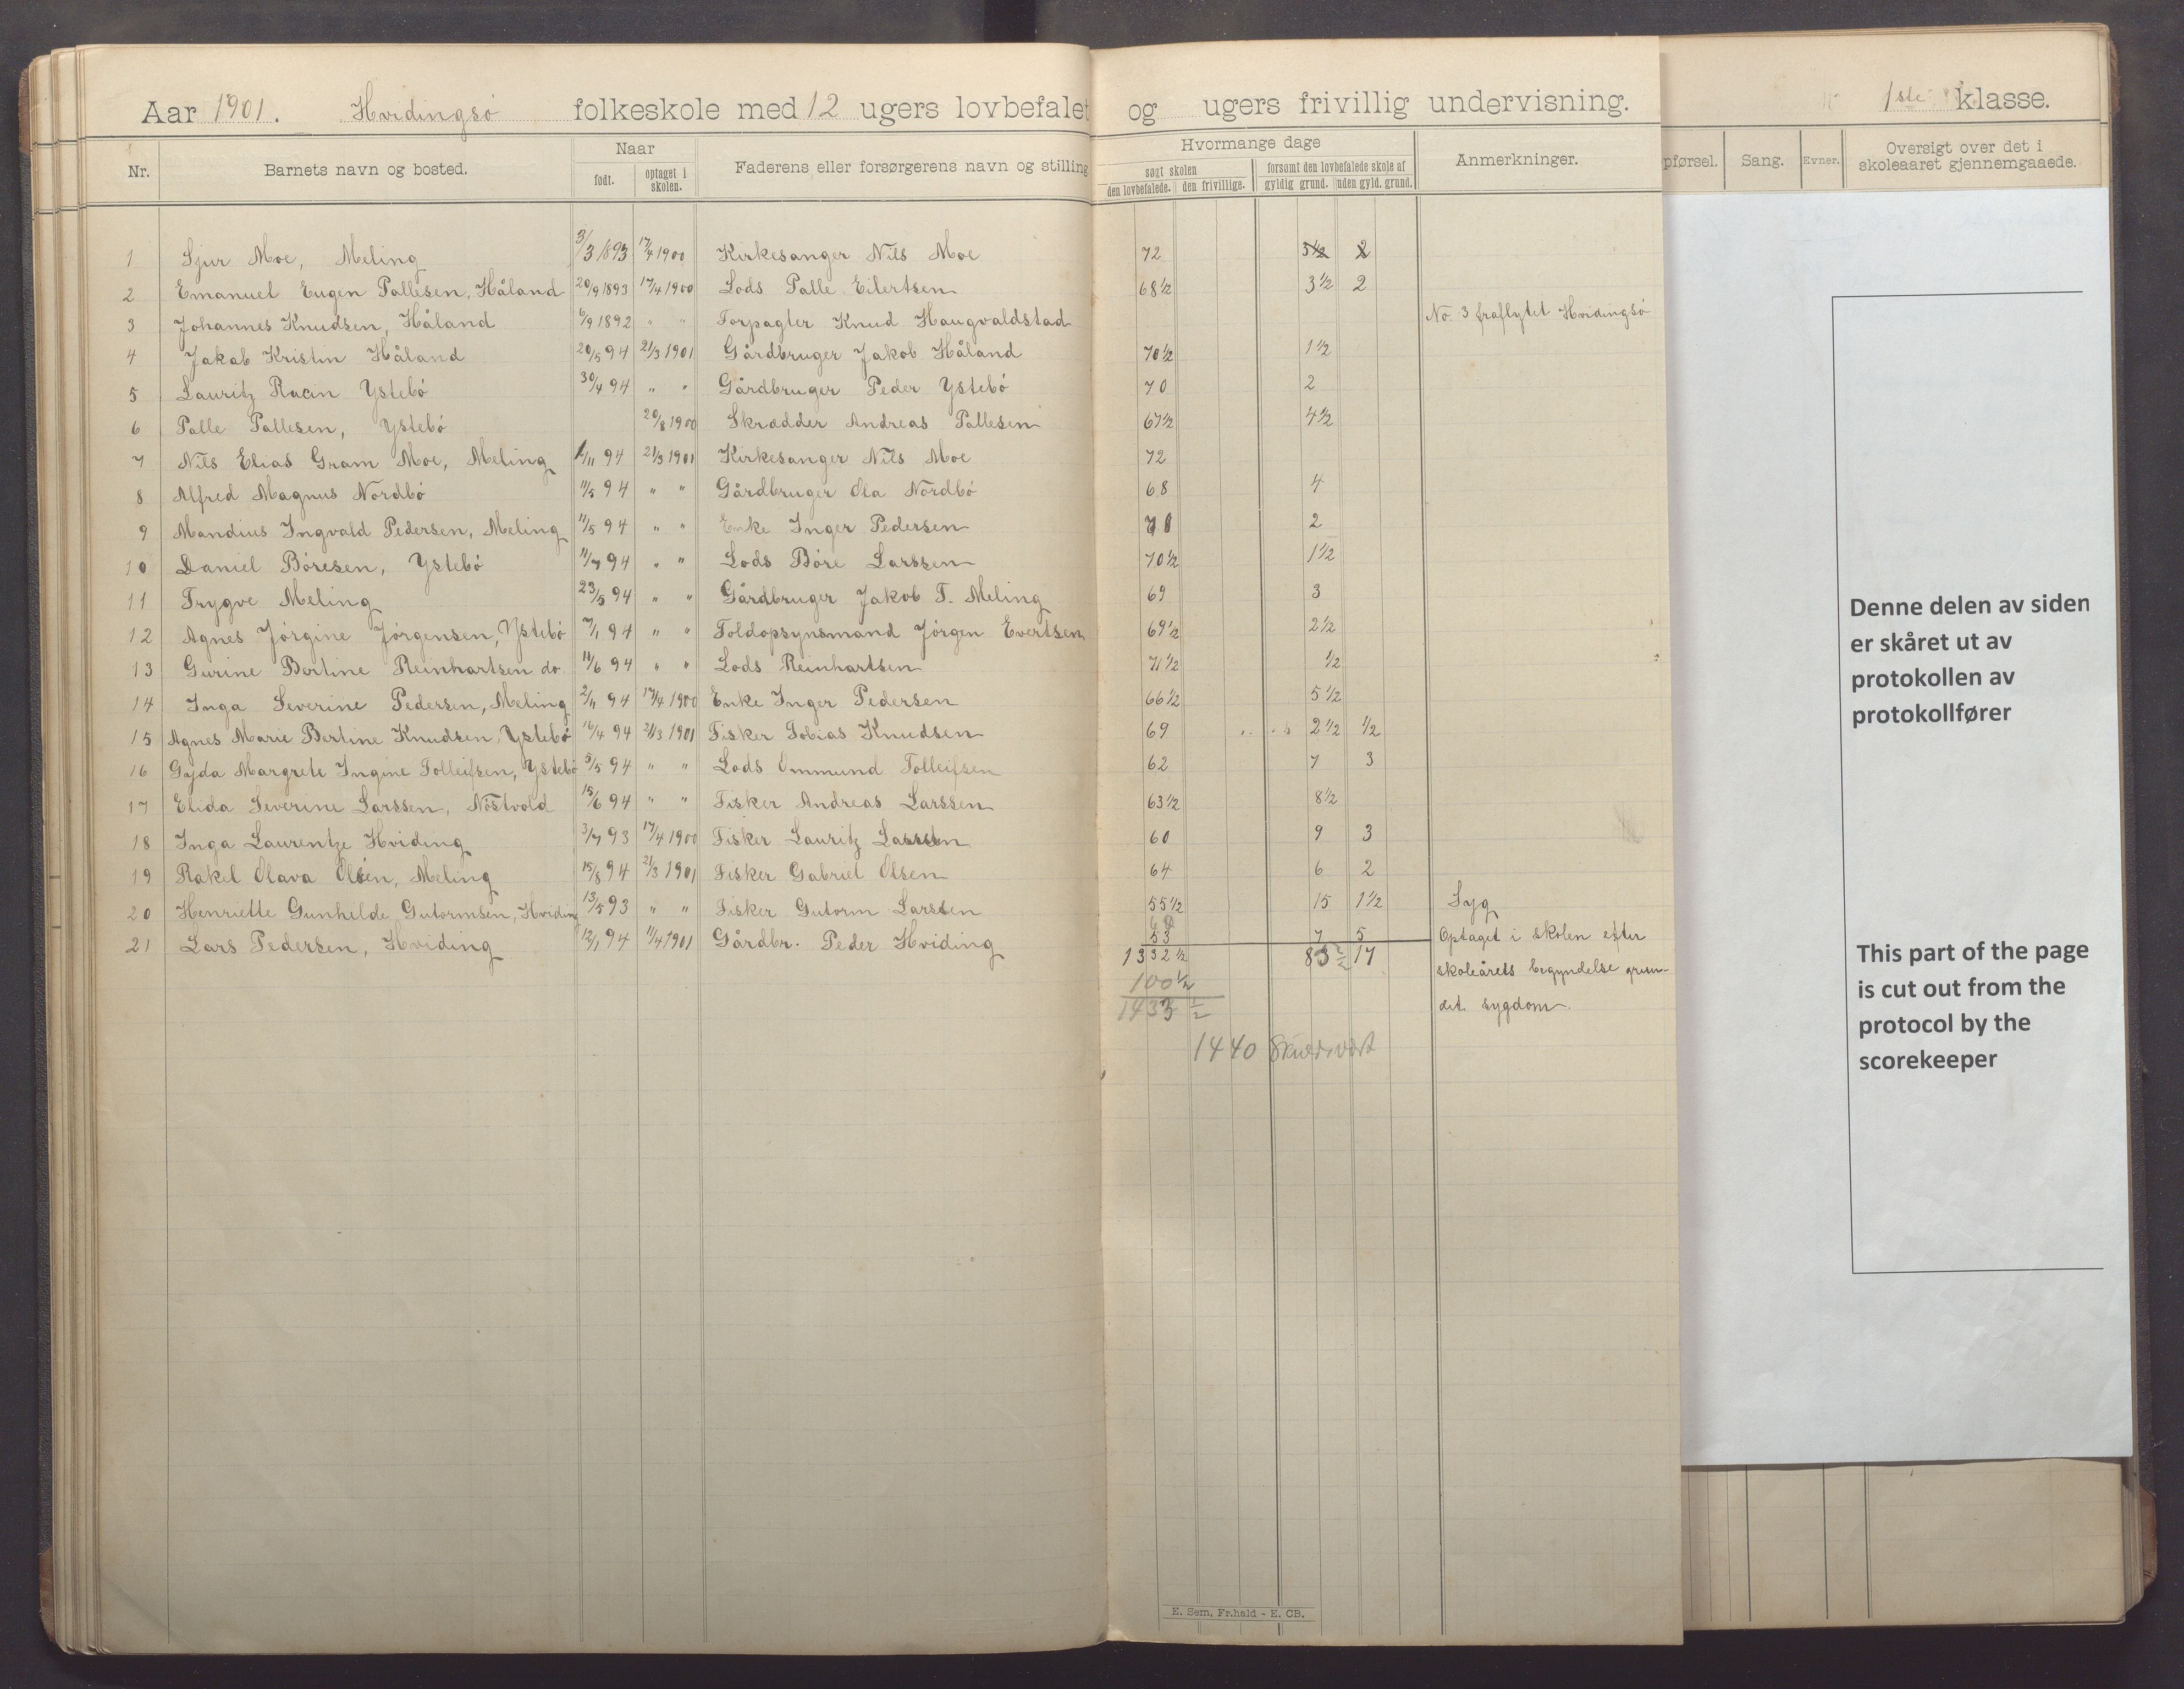 Aar 1901. Hvidingsö folkeskole med 12 ugers lovbefalet og ugers frivillig undervisning. 1ste klasse.
Nr. Barnets navn og bosted. Naar født. optaget i skolen. Faderens eller forsørgerens navn og stilling Hvormange dage søgt skolen den lovbefalede. den frivillige. forsømt den lovbefalede skole af gyldig grund. uden gyld. grund. Anmerkninger. pførsel. Sang. Evner. Oversigt over det i skoleaaret gjennemgaaede.
1 Sjur Moe, Meling 3/3 1893 17/4 1900 Kirkesanger Nils Moe 72
2 Emanuel Eugen Pallesen, Håland 20/9 1893 17/4 1900 Lods Palle Eilertsen 68 1/2 3 1/2 2
3 Johannes Knudsen, Håland 6/9 1892 " " Forpagter Knud Haugvaldstad No. 3 fraflytet Hvidingsö
4 Jakob Kristin Håland 20/5 94 21/3 1901 Gårdbruger Jakob Håland 70 1/2 1 1/2
5 Lauritz Racin Ystebö 30/4 94 " " Gårdbruger Peder Ystebö 70 2
6 Palle Pallesen, Ystebö 20/8 1900 Skrædder Andreas Pallesen 67 1/2 4 1/2
7 Nils Elias Gram Moe, Meling 1/11 94 21/3 1901 Kirkesanger Nils Moe 72
8 Alfred Magnus Nordbö 11/5 94 " " Gårdbruger Ola Nordbö 68 4
9 Mandius Ingvald Pedersen, Meling 11/5 94 " " Enke Inger Pedersen 70 2
10 Daniel Böresen, Ystebö 11/7 94 " " Lods Böre Larssen 70 1/2 1 1/2
11 Trygve Meling 23/5 94 " " Gårdbruger Jakob T. Meling 69 3
12 Agnes Jörgine Jörgensen, Ystebö 7/1 94 " " Toldopsynsmand Jörgen Evertsen 69 1/2 2 1/2
13 Gurine Bertine Reinhartsen do. 11/6 94 " " Lods Reinhartsen 71 1/2 1/2
14 Inga Severine Pedersen, Meling 2/11 94 17/4 1900 Enke Inger Pedersen 66 1/2 5 1/2
15 Agnes Marie Bertine Knudsen, Ystebö 16/4 94 21/3 1901 Fisker Tobias Knudsen 69 2 1/2 1/2
16 Gyda Margrete Ingine Tolleifsen, Ystebö 5/5 94 " " Lods Ommund Tolleifsen 62 7 3
17 Elida Severine Larssen, Nöstvold 15/6 94 " " Fisker Andreas Larssen 63 1/2 8 1/2
18 Inga Laurentze Hviding 3/7 93 17/4 1900 Fisker Lauritz Larssen 60 9 3
19 Rakel Olava Olsen, Meling 15/8 94 21/3 1901 Fisker Gabriel Olsen 64 6 2
20 Henriette Gunhilde Gutormsen, Hviding 13/5 93 " " Fisker Gutorm Larssen 55 1/2 15 1 1/2 Syg
21 Lars Pedersen, Hviding 12/1 94 11/4 1901 Gårdbr. Peder Hviding 53 7 5 Optaget i skolen efter
1332 1/2 83 1/2 17 skoleårets begyndelse grun-
100 1/2
1433 1/2 det sygdom.
1440
E. Sem, Fr.hald - E. CB.
Denne delen av siden
er skåret ut av
protokollen av
protokollfører
This part of the page
is cut out from the
protocol by the
scorekeeper